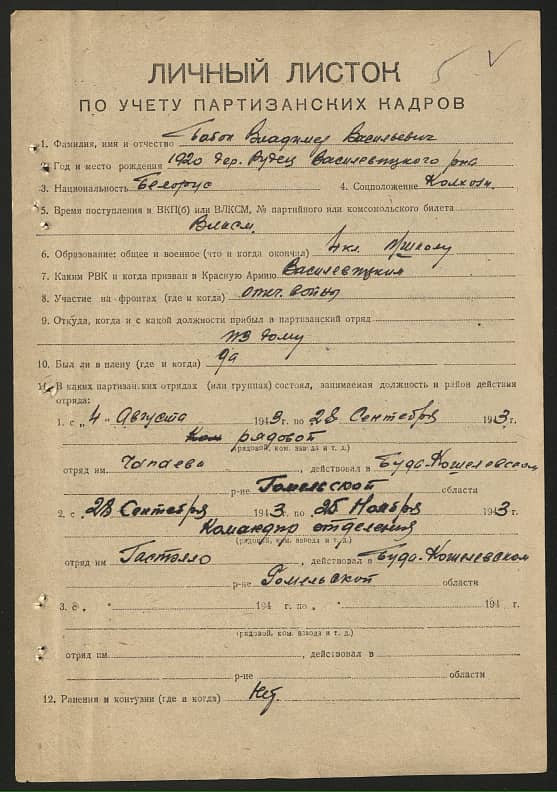 ЛИЧНЫЙ ЛИСТОК
ПО УЧЕТУ ПАРТИЗАНСКИХ КАДРОВ
1. Фамилия, имя и отчество Бабок Владимир Васильевич
2. Год и место рождения 1920 дер. Рудец Василевицкого р-на
3. Национальность Белорус 4. Соцположение Колхозн.
5. Время поступления в ВКП(б) или ВЛКСМ, № партийного или комсомольского билета
Власм.
6. Образование: общее и военное (что и когда окончил) 4кл. школу
7. Каким РВК и когда призван в Красную Армию Василевицким
8. Участие на фронтах (где и когда) отеч. войы
9. Откуда, когда и с какой должности прибыл в партизанский отряд
из дому
10. Был ли в плену (где и когда) да
11. В каких партизанских отрядах (или группах) состоял, занимаемая должность и район действия
отряда:
1. с „4„ Августа 1943 г. по 28 Сентебря 1943 г.
рядовой
(рядовой, ком. взвода и т. д.)
отряд им. Чапаева, действовал в Буда-Кошелевском
р-не Гомельской области
2. с 28 Сентебря 1943 г. по 25 Ноября 1943 г.
Командир отделения
(рядовой, ком. взвода и т. д.)
отряд им Гастэлло, действовал в Буда-Кошелевском
р-не Гомельской области
3. с „ " 194 г. по „ " 194 г.
(рядовой, ком. взвода и т. д.)
отряд им , действовал в
р-не области
12. Ранения и контузии (где и когда) Нет.